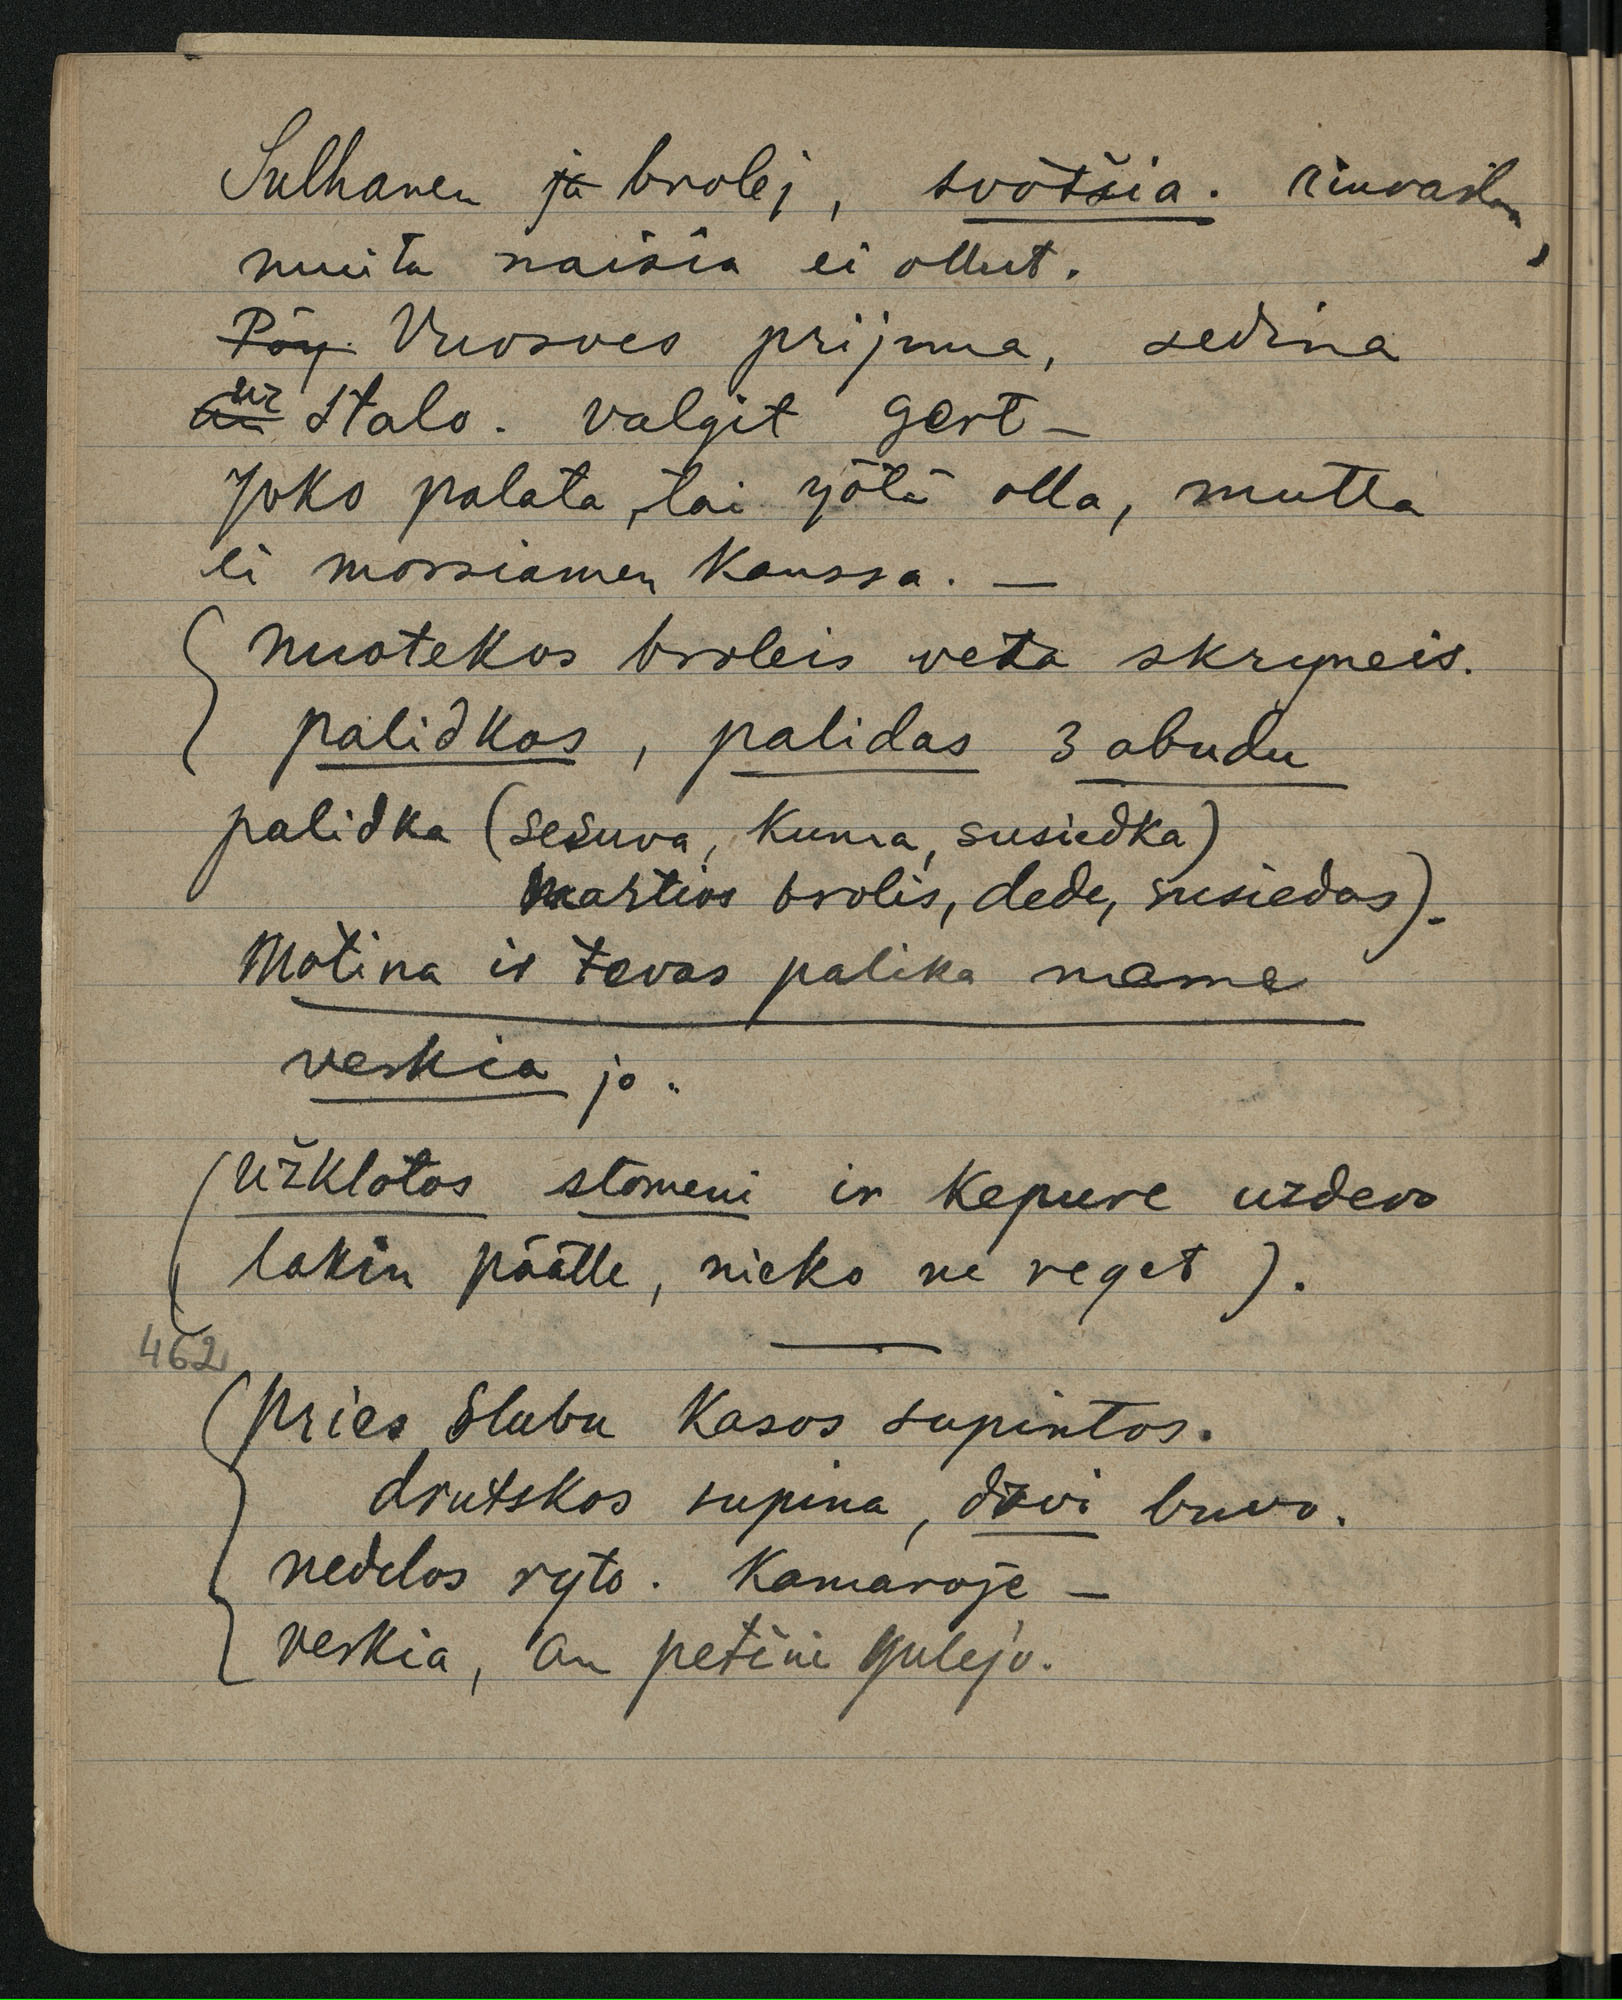 Sulhanen ja brolej, svötšia.
muita naisia ei ollut.
Pöy Vuosves prijma, sedina
an uz stalo. valgit gert –
Joko palata, tai yötä olla, mutta
ei morsiamen kanssa. –
nuotekos broleis veža skryneis.
palidkos, palidas 3 abudu
palidka (sesuva, kuma, susiedka)
martios brolis, dede, susiedas).
Motina ir tevas palika name
verkia jo.
(užklotos stomeni ir kepure uzdevo
lakin päälle, nieko ne reget).
462
pries slubu kasos supintos.
drutskos supina, dzvi buvo.
nedelos ryto. Kamaroje –
verkia, an petini gulejo.